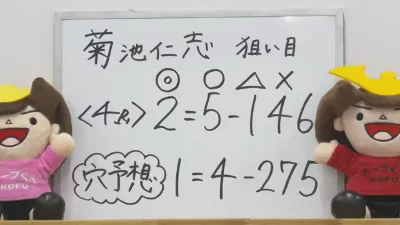 菊池仁志 狙い目
◎ ○ △ ×
<4R> 2=5-146
穴予想 1=4-275
HOFU
HOFU